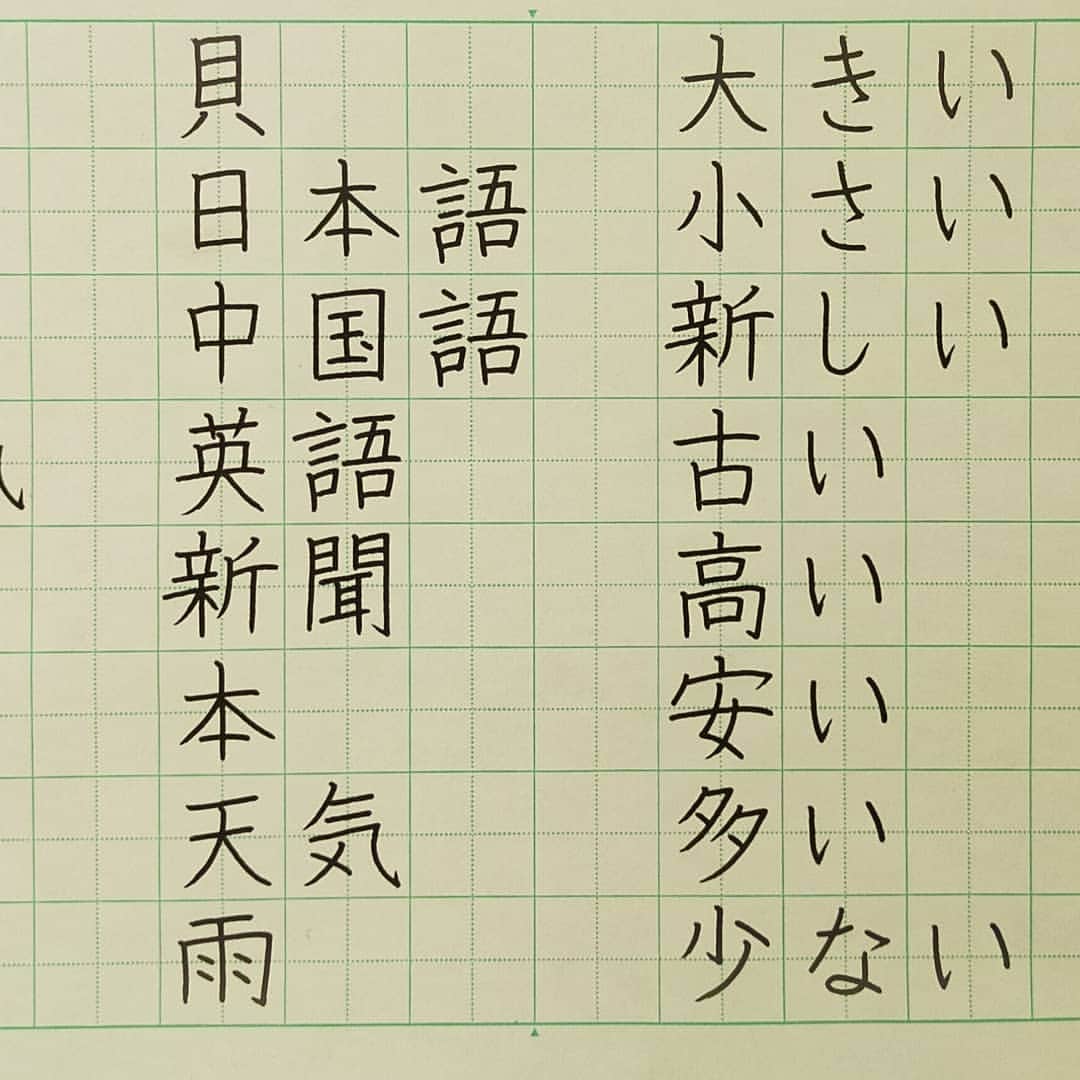 貝
日本語
中国語
英語
新聞
本
天気
雨
大きい
小さい
新しい
古い
高い
安い
多い
少ない